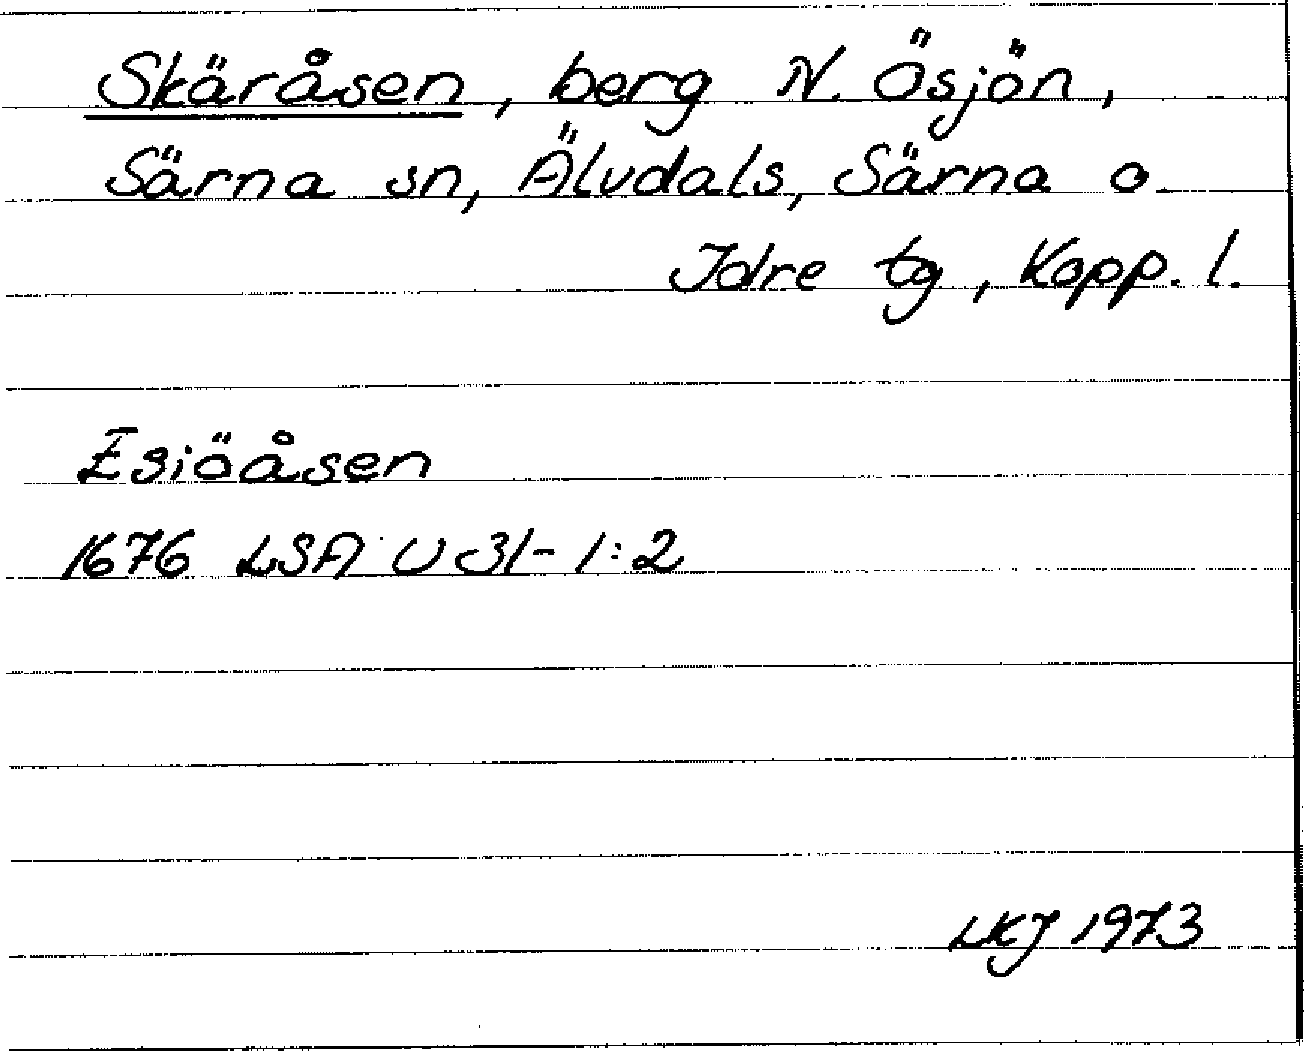 Skäråsen, berg N. Ösjön,
Särna sn, Älvdals, Särna o.
Idre tg, Kopp. l.
Esiöåsen
1676 LSA U 31-1:2
LKJ 1973